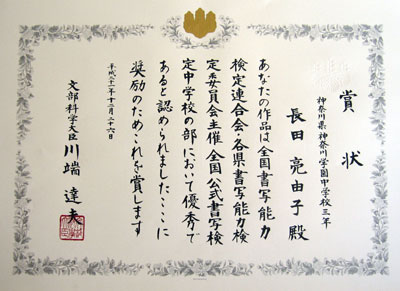 賞状
神奈川県神奈川学園中学校三年
長田亮由子殿
あなたの作品は全国書写能力
検定連合会・各県書写能力検
定委員会主催全国公式書写検
定中学校の部において優秀で
あると認められましたここに
奨励のためこれを賞します
平成二十一年十二月二十六日
文部科学大臣川端達夫